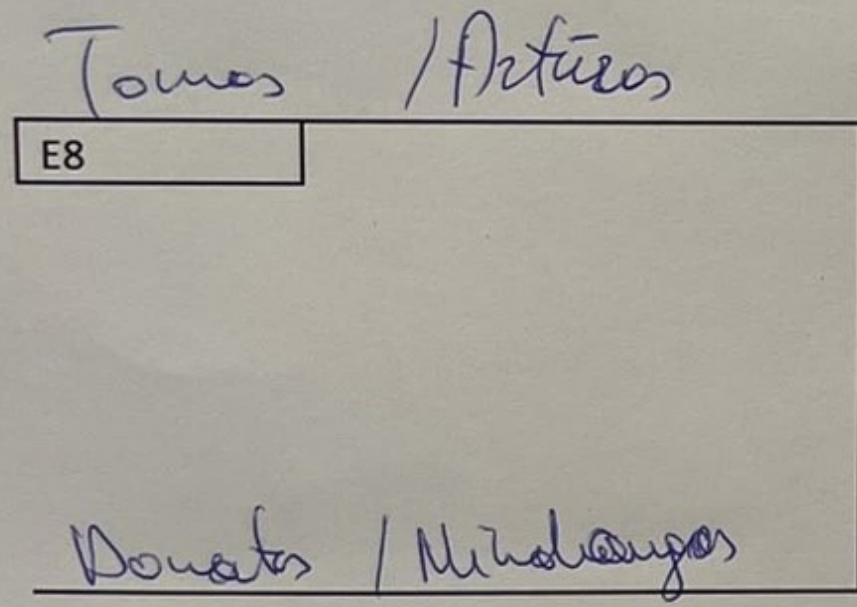 Tomas / Artūras
E8
Donatas / Mindaugas